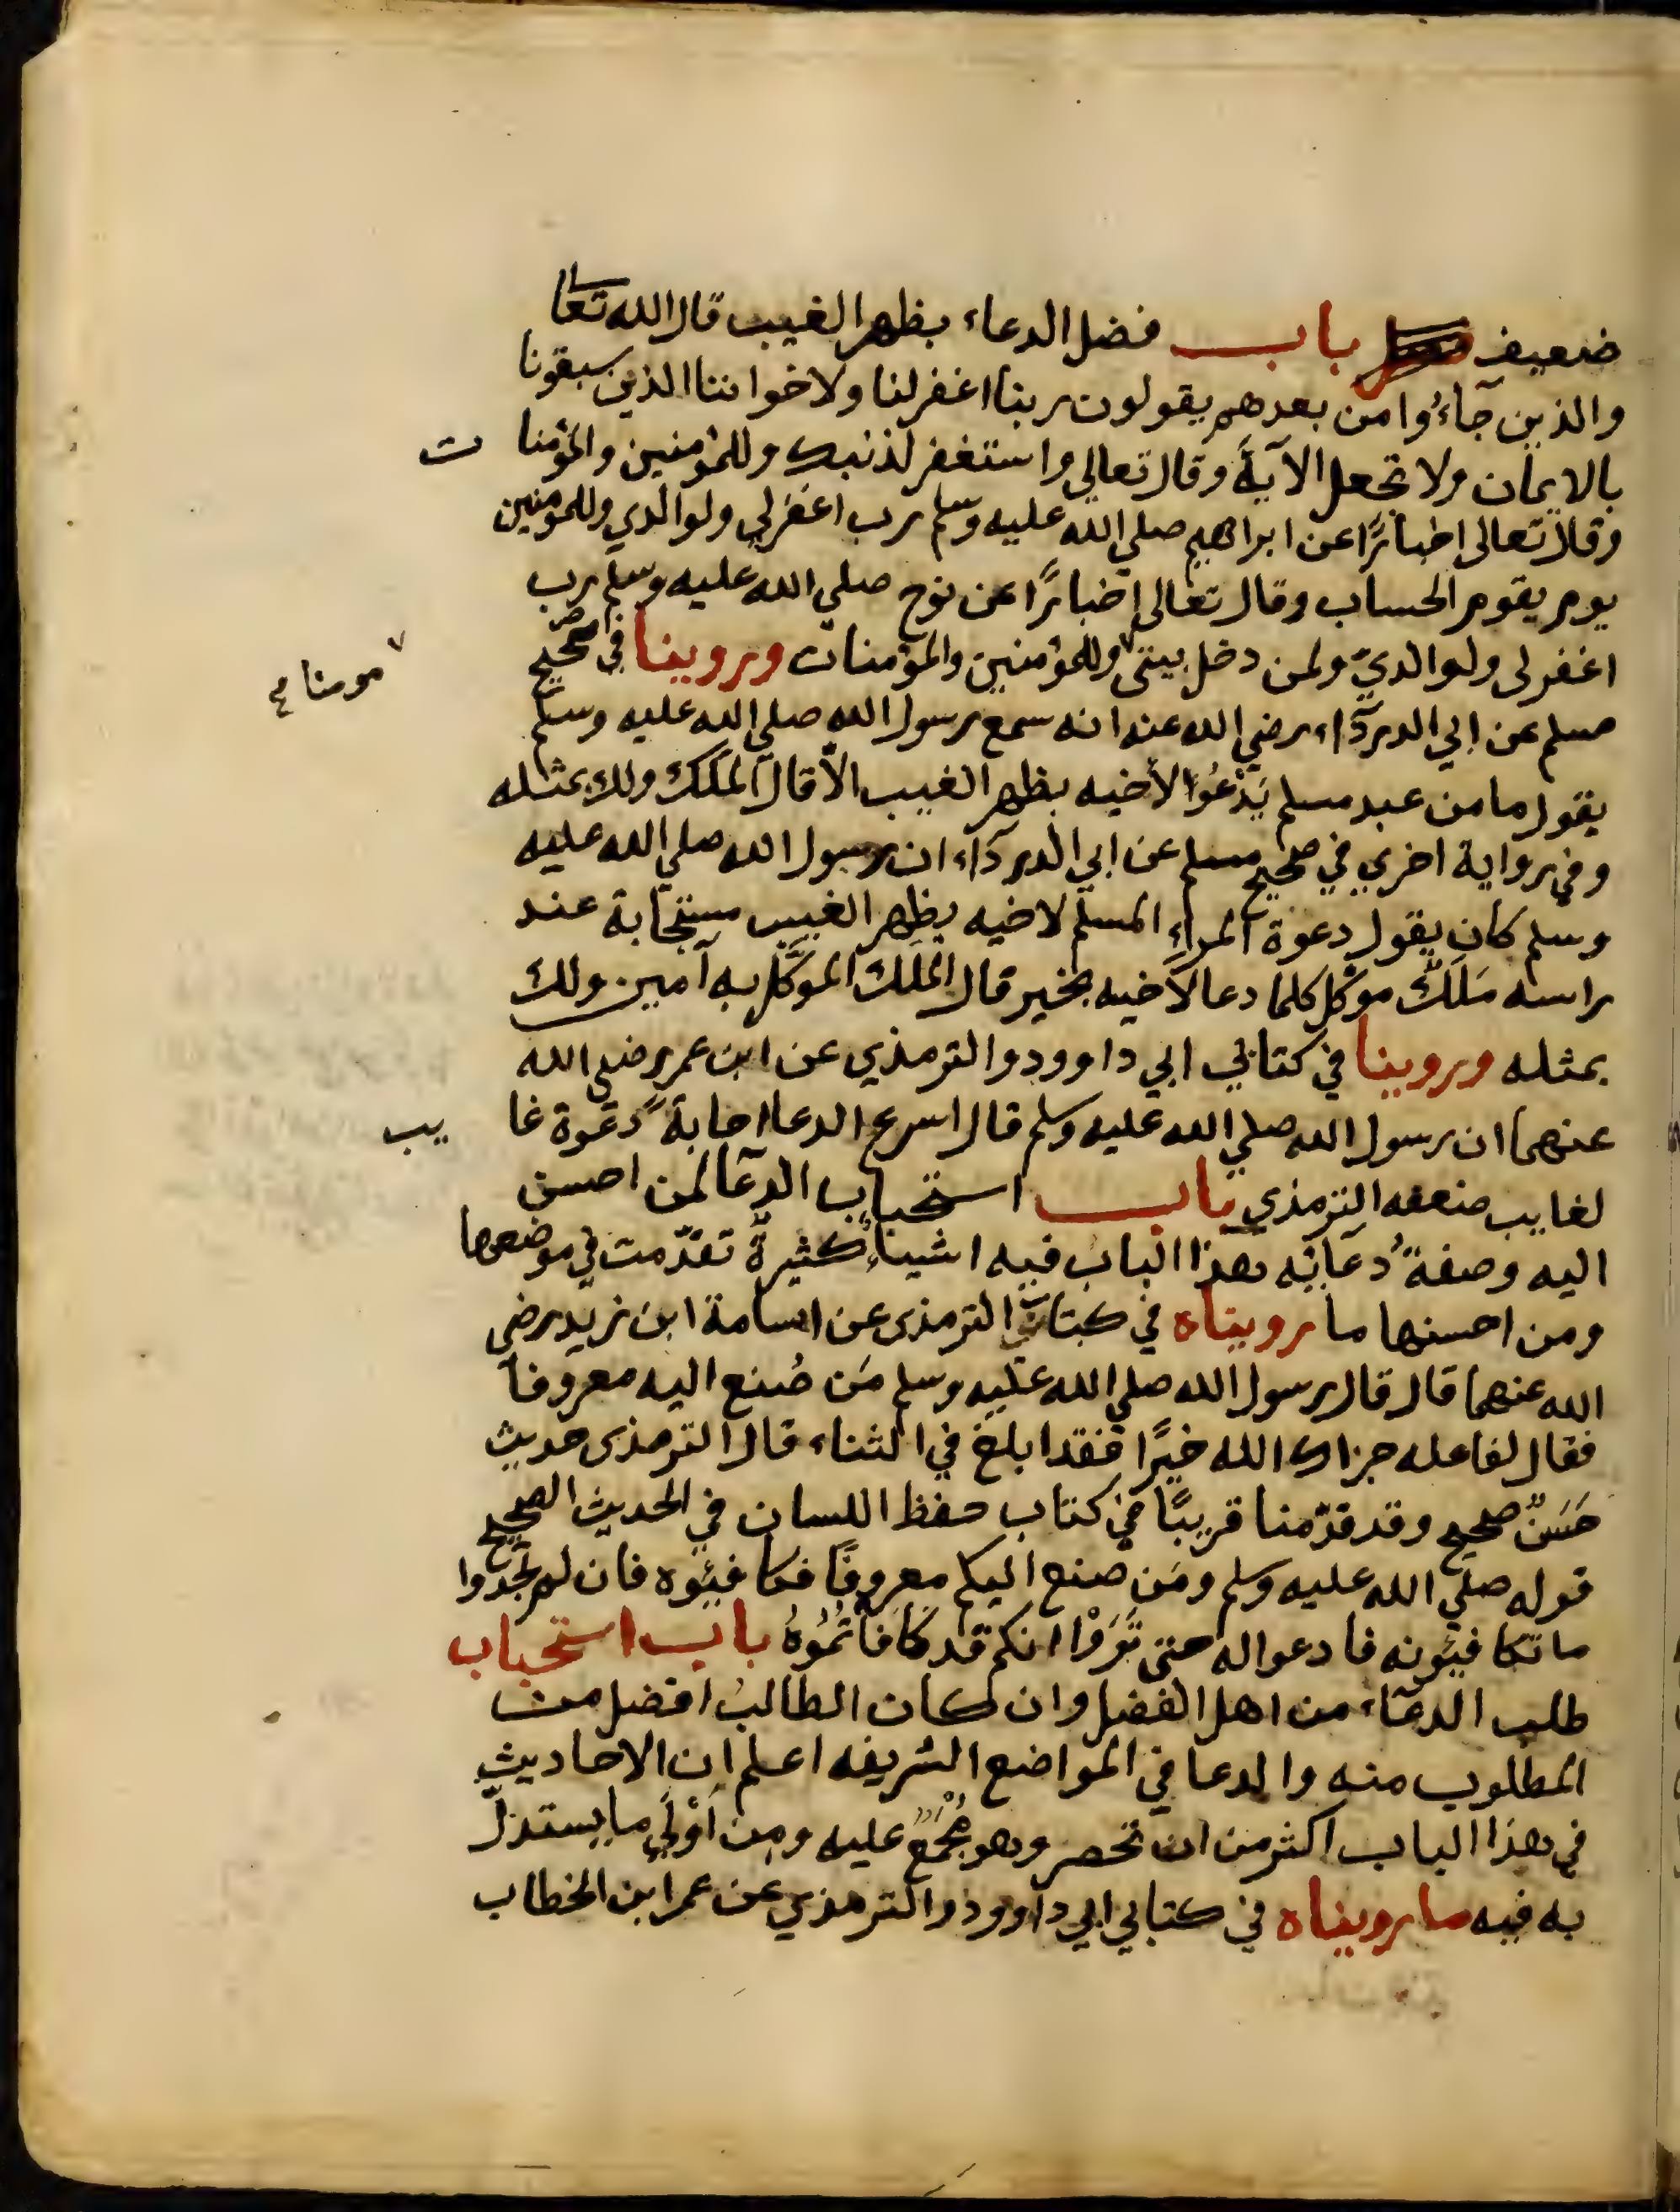 ضعيف باب فضل الدعاء بظهر الغيب قال الله تعالى
والذين جآءُوا من بعدهم يقولون ربنا اغفر لنا ولاخواننا الذين سبقونا
بالايمان ولا تجعل الآية وقال تعالى واستغفر لذنبك وللمؤمنين والمؤمنا ت
وقال تعالى اخبارًا عن ابراهيم صلي الله عليه وسلم رب اغفر لي ولوالدي وللمومنين
يوم يقوم الحساب وقال تعالى اخبارًا عن نوح صلي الله عليه وسلم رب
اغفر لى ولوالديّ ولمن دخل بيتى وللمؤمنين والمؤمنات وروينا في صحيح
مومنا
مسلم عن ابي الدردآء رضي الله عنه انه سمع رسول الله صلي الله عليه وسلم
يقول ما من عبد مسلم يَدْعُوا لأخيه بظهر الغيب الّا قال الملَك ولك بمثله
وفي رواية اخري في صحيح مسلم عن ابي الدردآء ان رسول الله صلي الله عليه
وسلم كان يقول دعوة المراءِ المسلم لاخيه بظهر الغيب مستجابة عند
راسه مَلَكٌ موكل كلما دعا لاخيه بخير قال الملَك الموكَّل به آمين ولك
بمثله وروينا في كتابي ابي داوود والترمذي عن ابن عمر رضي الله
عنهما ان رسول الله صلي الله عليه وسلم قال اسرع الدعا اجابةً دعوة غا يب
لغايب ضعفه الترمذي باب استحباب الدعآ لمن احسن
اليه وصفةُ دعآئه هذا الباب فيه اشياءُ كثيرةٌ تقدّمت في موضعها
ومن احسنها ما رويناه في كتاب الترمذى عن اسامة ابن زيد رضي
الله عنهما قال قال رسول الله صلي الله عليه وسلم مَن صُنع اليه معروفاً
فقال لفاعله جزاك الله خيرًا فقد ابلغ في الثناء قال الترمذى حديث
حَسَنٌ صحيح وقد قدّمنا قريبًا في كتاب حفظ اللسان في الحديث الصحيح
قوله صلي الله عليه وسلم ومَن صنع اليكم معروفًا فكافيُوه فان لم تجدوا
ما تكافيُونه فادعوا له حتى تَرَوْا انكم قد كافاتُمُوهُ باب استحباب
طلب الدعآء من اهل الفضل وان كان الطالبُ افضل من
المطلوب منه والدعا في المواضع الشريفه اعلم ان الاحاديث
في هذا الباب اكثر من ان تحصر وهو مُجْمَعٌ عليه ومن اَوْلَي ما يستدلّ
به فيه ما رويناه في كتابي ابي داوود والترمذي عن عمر ابن الخطاب